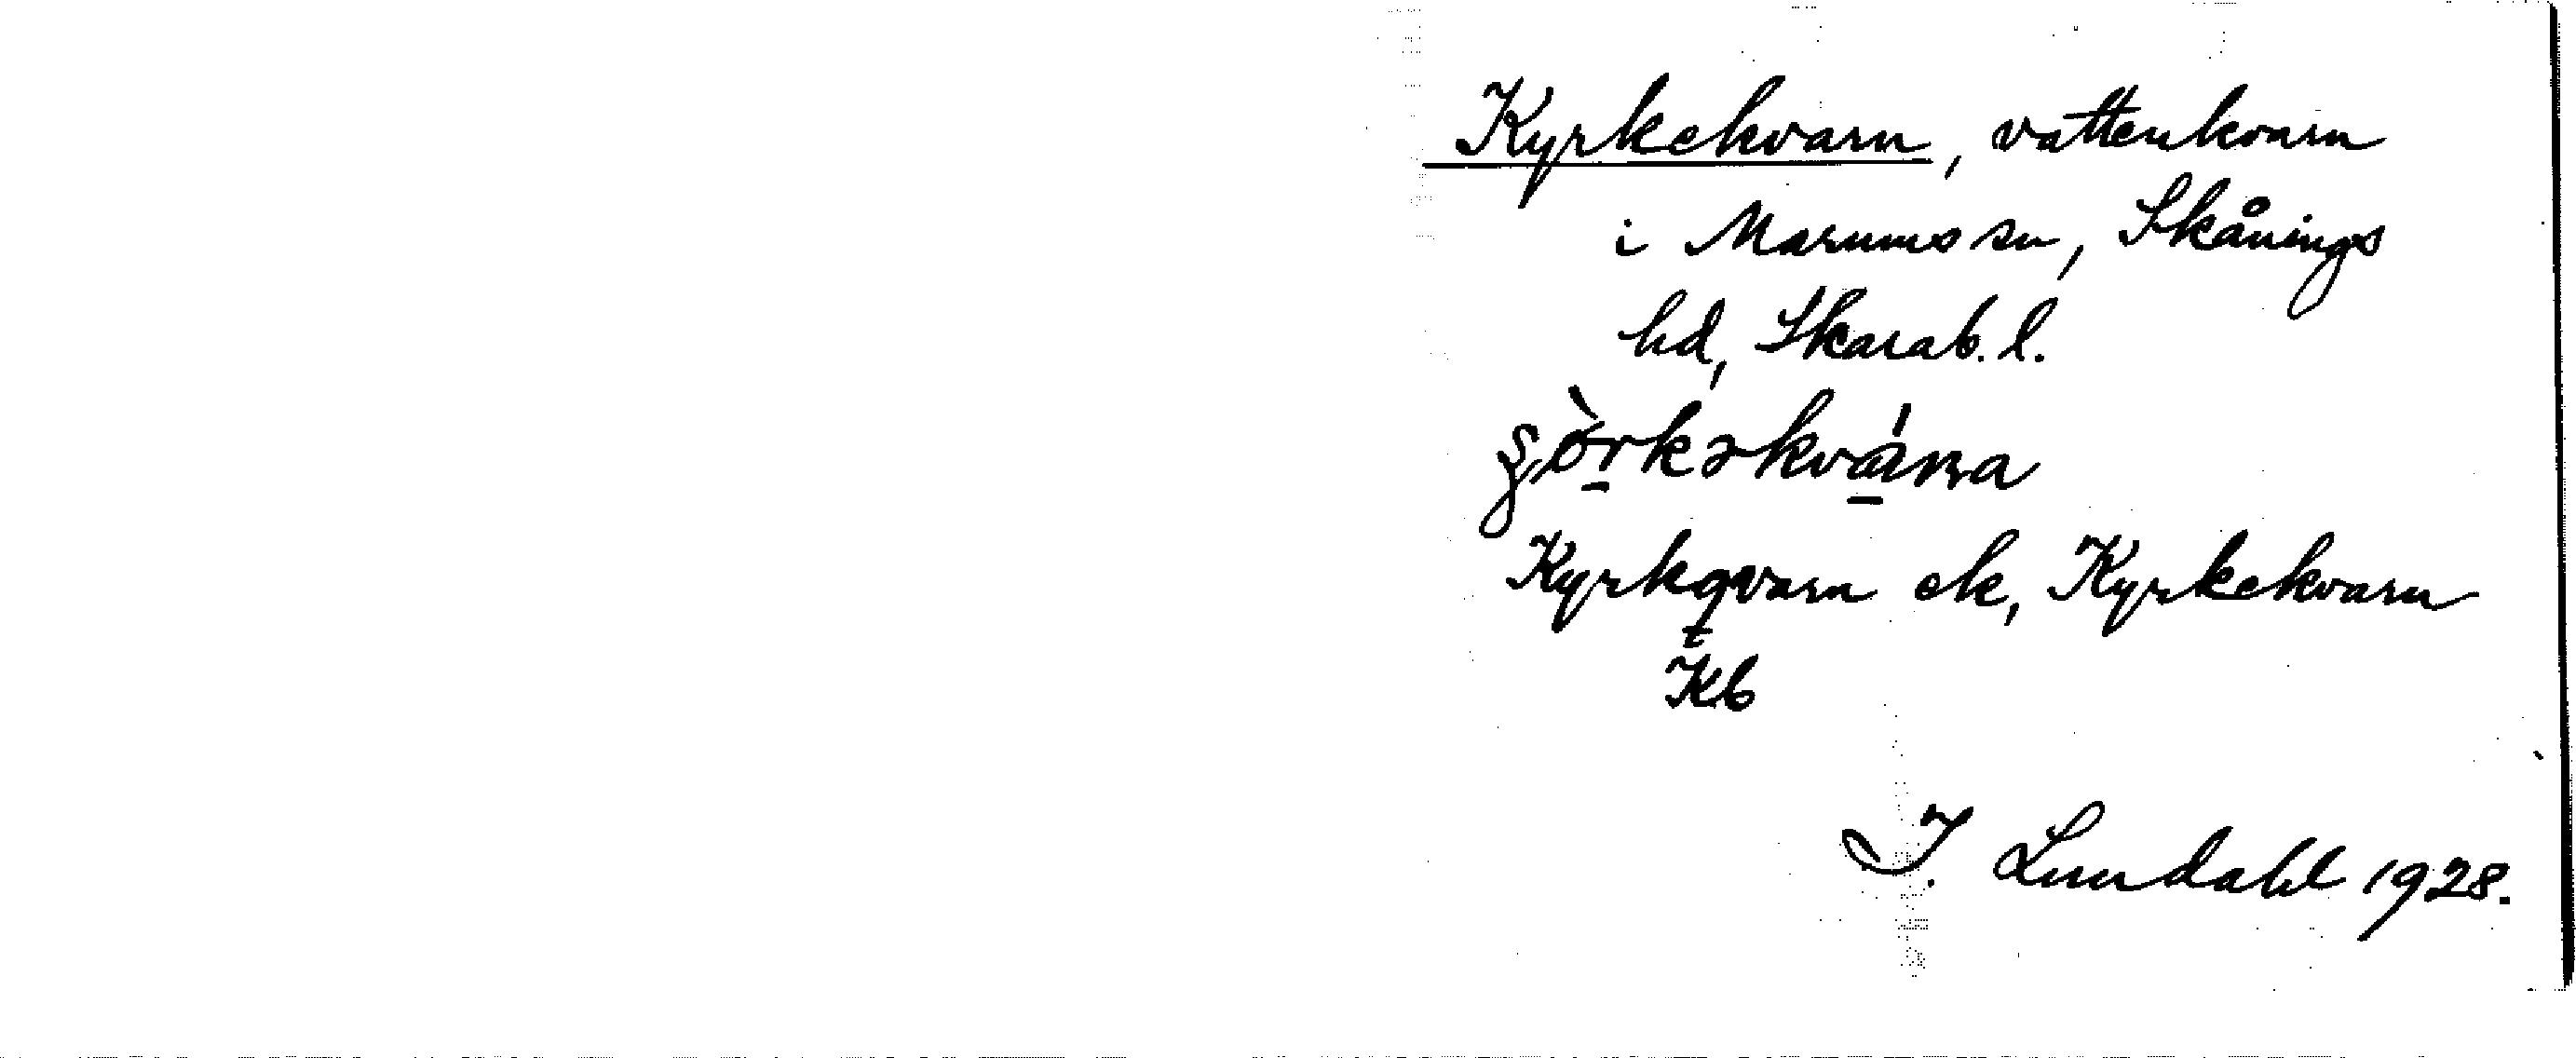 Kyrkekvarn, vattenkvarn
i Marums sn, Skånings
hd, Skarab. l.
ʂö̀rkəkvána
Kyrkqvarn ek, Kyrkekvarn
Kb
I. Lundahl 1928.